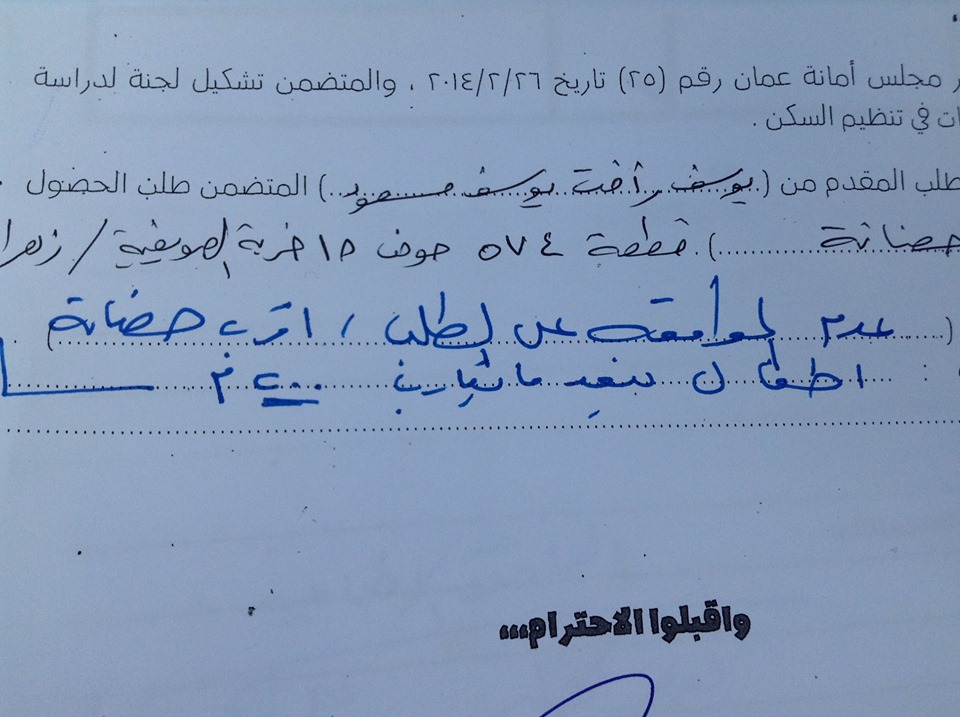 ر مجلس أمانة عمان رقم (٢٥) تاريخ ٢٠١٤/٢/٢٦ ، والمتضمن تشكيل لجنة لدراسة
ات في تنظيم السكن .
طلب المقدم من (يوسف رأفت يوسف مسعود) المتضمن طلب الحصول
حضانة) قطعة ٥٧٤ حوض ١٥ خربة الصويفية / زهرا
(عدم الموافقة على الطلب ، اقرب حضانة)
: اطفال تبعد ما يقارب ٢٠٠ م
واقبلوا الاحترام،،،